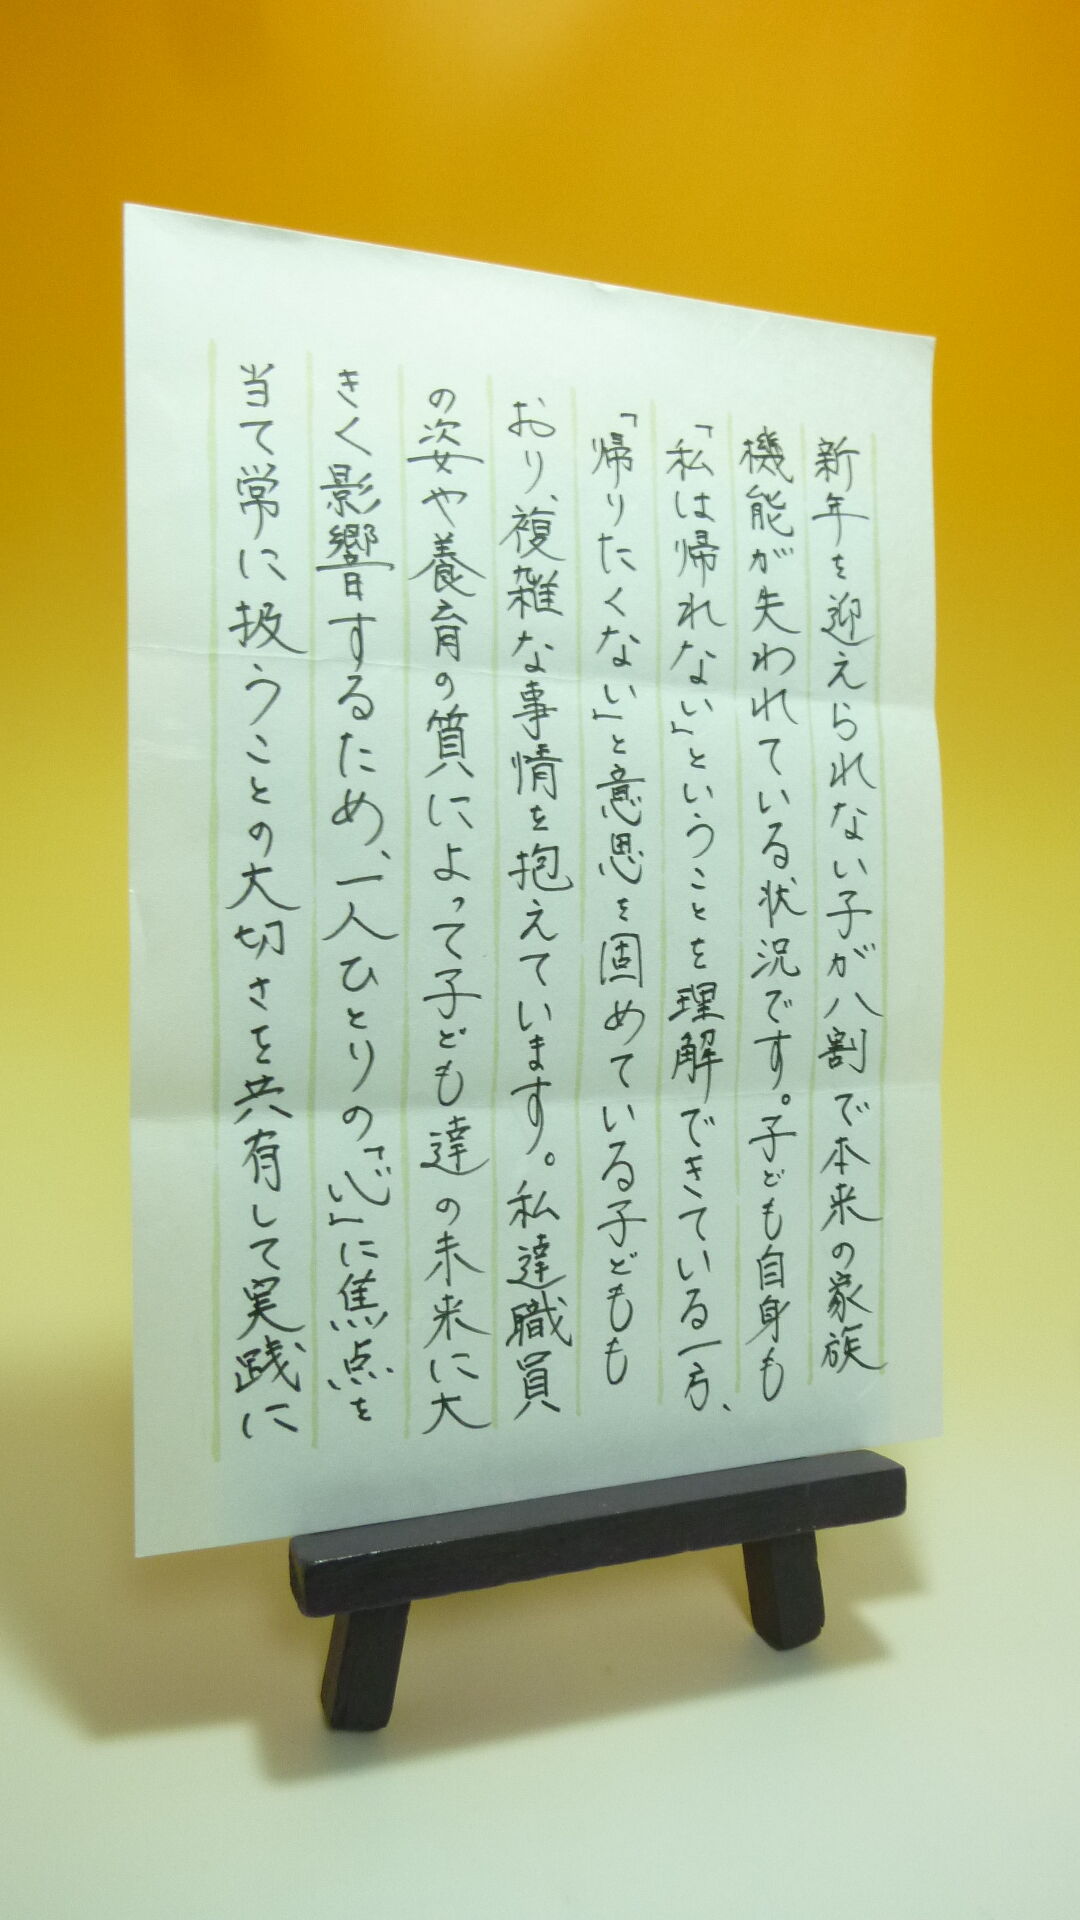 新年を迎えられない子が八割で本来の家族
機能が失われている状況です。子ども自身も
「私は帰れない」ということを理解できている一方、
「帰りたくない」と意思を固めている子どもも
おり、複雑な事情を抱えています。私達職員
の姿や養育の質によって子ども達の未来に大
きく影響するため、一人ひとりの「心」に焦点を
当て常に扱うことの大切さを共有して実践に